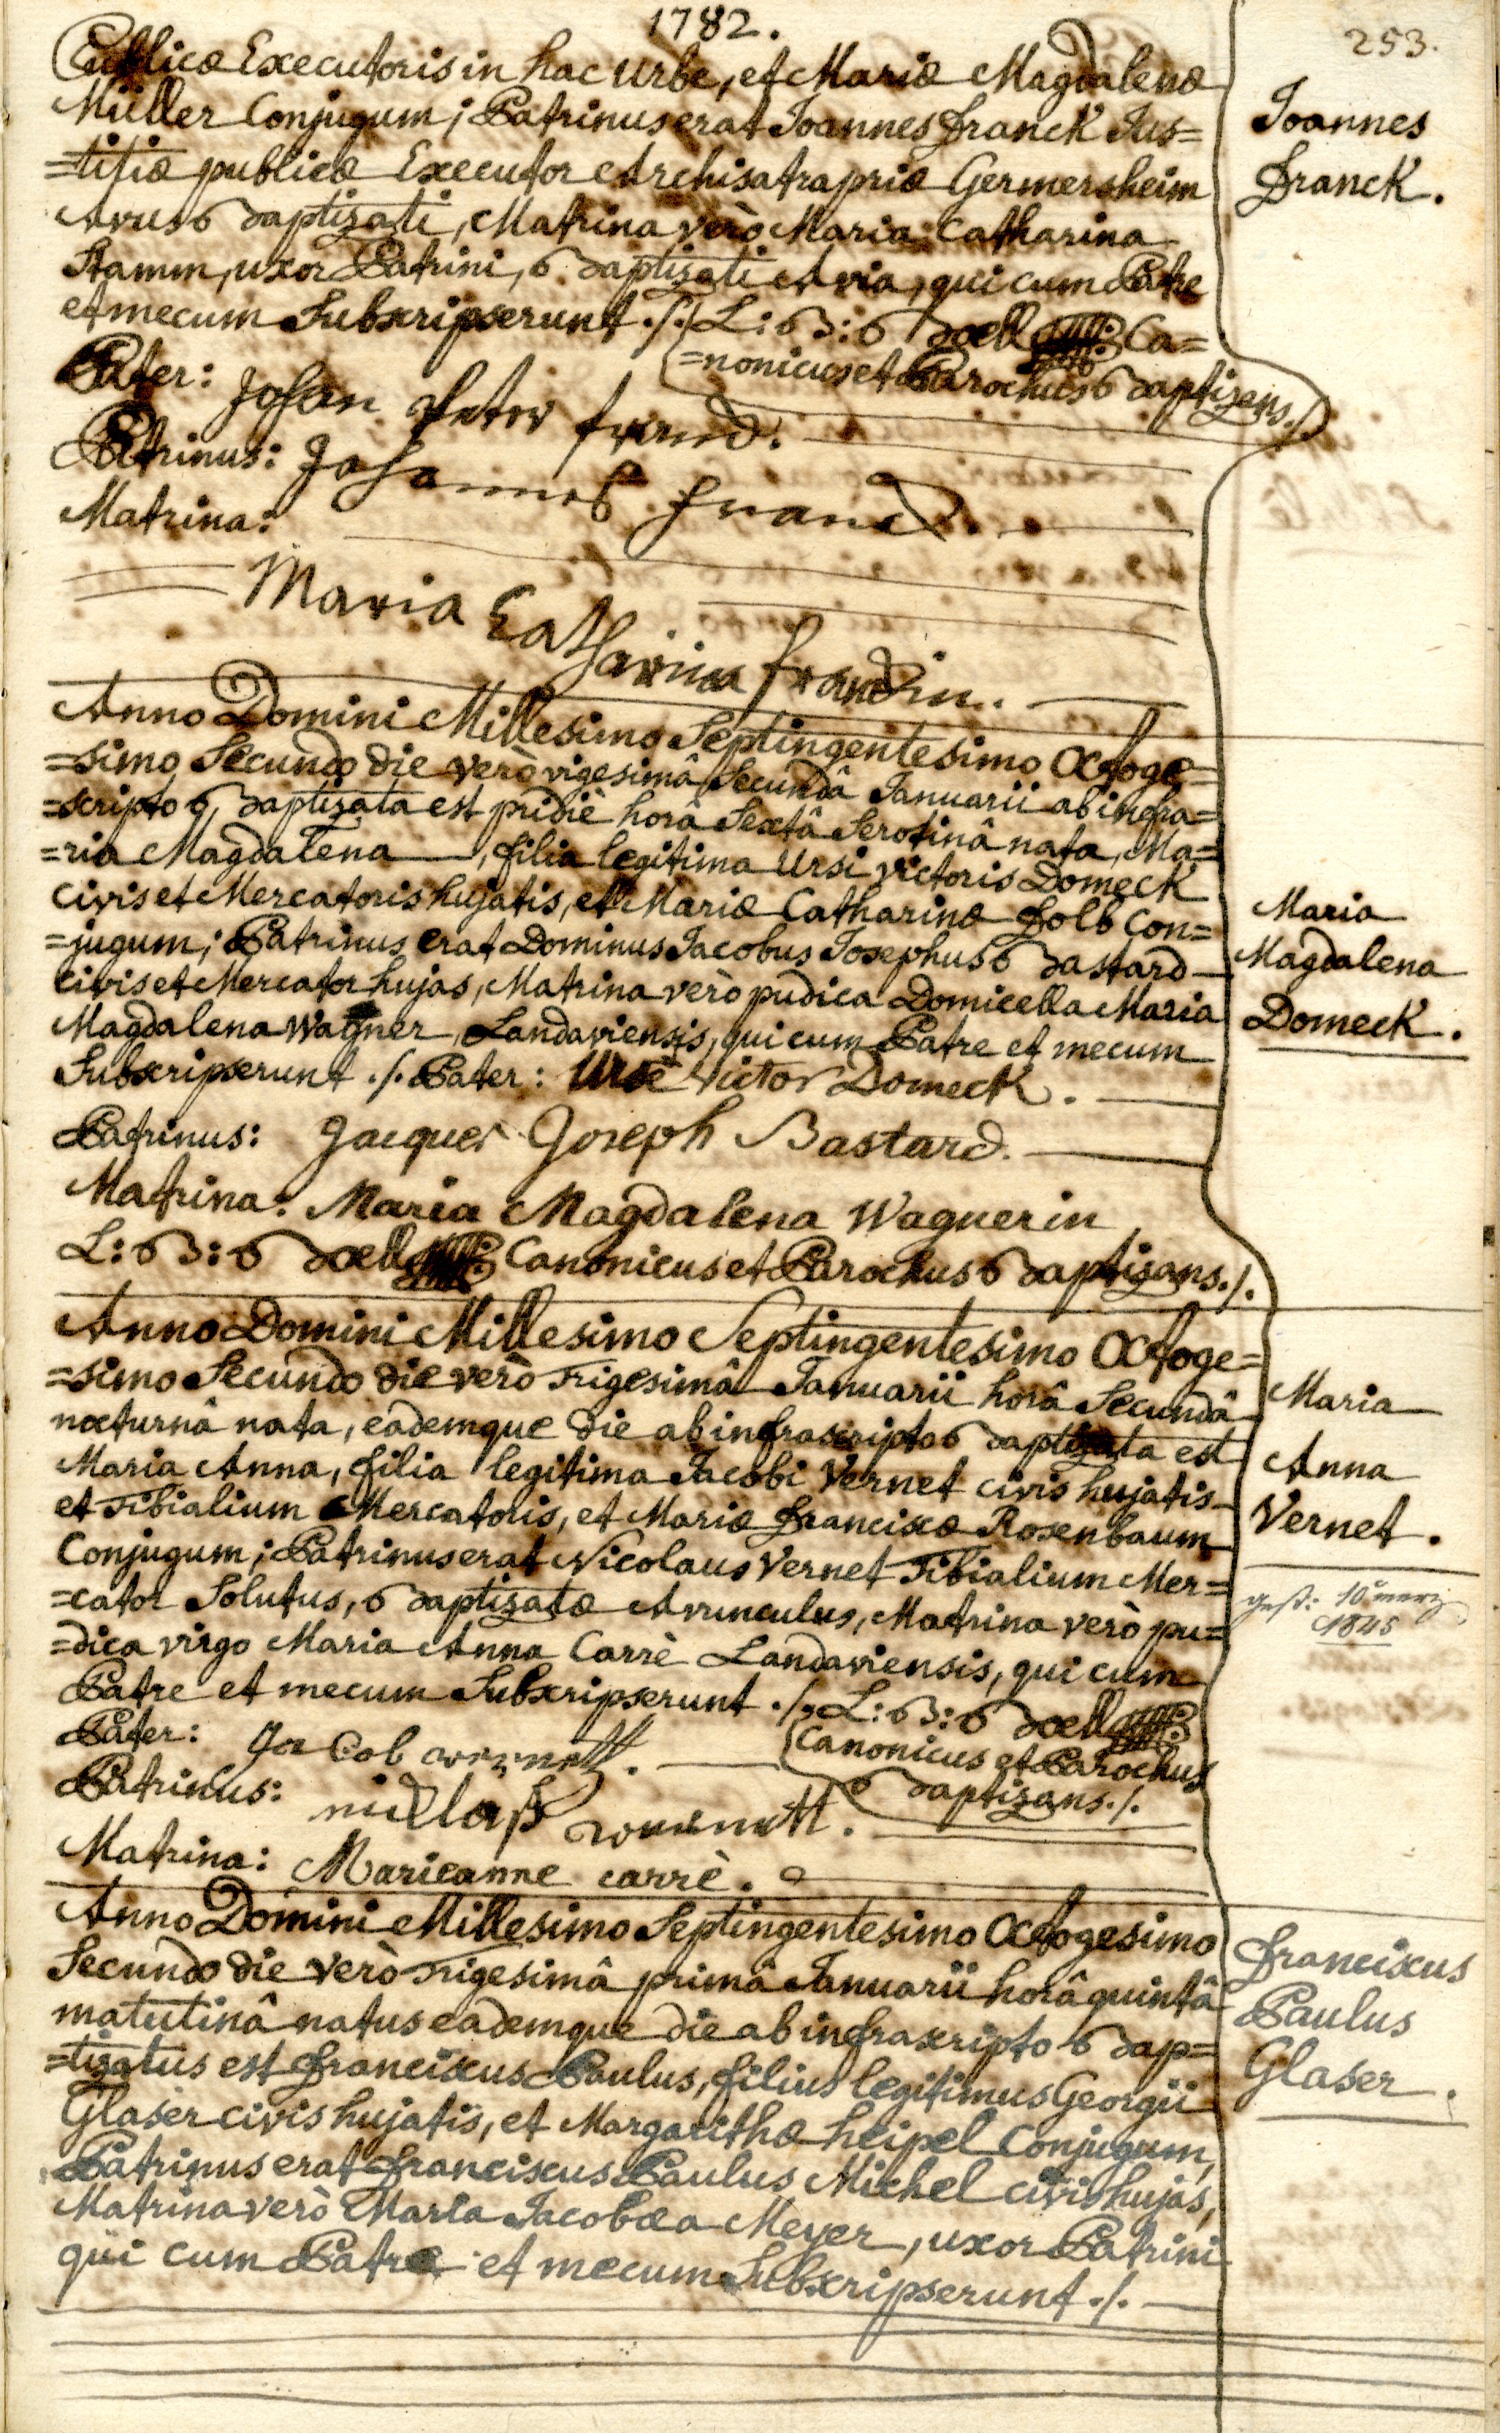 1782.
253.
Publicæ Executoris in hac urbe, et Mariæ Magdalenæ
Müller Conjugum; Patrinus erat Joannes Franck Jus=
=titiæ publicæ Executor Archisatrapiæ Germersheim
Avus Baptizati, Matrina verò Maria Catharina
Stamm, uxor Patrini, Baptizati Avia, qui cum Patre
et mecum Subscripserunt ./. L: B: Boell Ca=
=nonicus et Parochus Baptizans./.
Joannes
Franck.
Pater: Johan Peter franck.
Patrinus: Johannes franck.
Matrina:
Maria Catharina franckin.
Anno Domini Millesimo Septingentesimo Octoge=
=simo Secundo die verò vigesimâ Secundâ Januarii ab infra=
=scripto Baptizata est pridiè horâ Sextâ Serotinâ nata, Ma=
=ria Magdalena, filia legitima Ursi victoris Domeck
Civis et Mercatoris hujatis, et Mariæ Catharinæ Folb Con=
=jugum; Patrinus erat Dominus Jacobus Josephus Bastard
civis et Mercator hujas, Matrina verò pudica Domicella Maria
Magdalena Wagner, Landaviensis, qui cum Patre et mecum
Subscripserunt ./. Pater: Urse victor Domeck.
Patrinus: Jacques Joseph Bastard.
Matrina: Maria Magdalena Wagnerin
L: B: Boell Canonicus et Parochus Baptizans./.
Maria
Magdalena
Domeck.
Anno Domini Millesimo Septingentesimo Octoge=
=simo Secundo die verò Trigesimâ Januarii horâ Secundâ
nocturnâ nata, eademque die ab infrascripto Baptizata est
Maria Anna, filia legitima Jacobi Vernet civis hujatis
et Tibialium Mercatoris, et Mariæ Franciscæ Rosenbaum
Conjugum; Patrinus erat Nicolaus Vernet Tibialium Mer=
=cator Solutus, Baptizatæ Avunculus, Matrina verò pu=
=dica virgo Maria Anna Carrè Landaviensis, qui cum
Patre et mecum Subscripserunt ./. L: B: Boell
Canonicus et Parochus
Baptizans./.
Maria
Anna
Vernet.
gest: 10 merz
1845
Pater: Jacob
Patrinus:
Matrina: Marieanne carrè.
Anno Domini Millesimo Septingentesimo Octogesimo
Secundo die verò Trigesimâ primâ Januarii horâ quintâ
matutinâ natus eademque die ab infrascripto Bap=
=tizatus est Franciscus Paulus, filius legitimus Georgii
Glaser civis hujatis, et Margarithæ heipel Conjugum,
Patrinus erat Franciscus Paulus Michel civis hujas,
Matrina verò Maria Jacobæa Meyer, uxor Patrini
qui cum Patre et mecum Subscripserunt ./.
Franciscus
Paulus
Glaser.